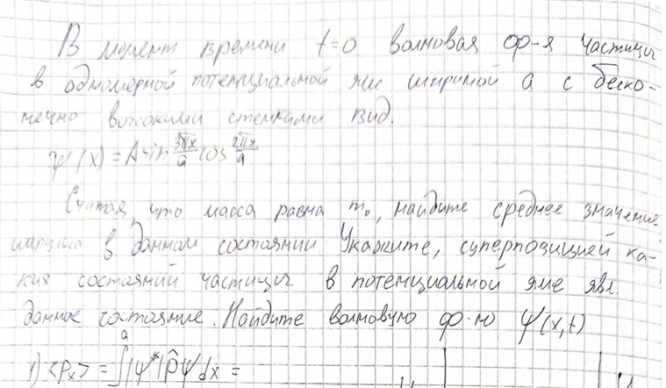 В момент времени t=0 волновая ф-я частицы
в одномерной потенциальной яме шириной a с беско-
нечно высокими стенками вид.
ψ(x) = A sin 3πx/a cos 2πx/a
Считая, что масса равна m₀, найдите среднее значение
импульса в данном состоянии. Укажите, суперпозицией ка-
ких состояний частицы в потенциальной яме явл.
данное состояние. Найдите волновую ф-ю ψ(x,t)
1) <pₓ> = ∫ψ* p̂ ψ dx =